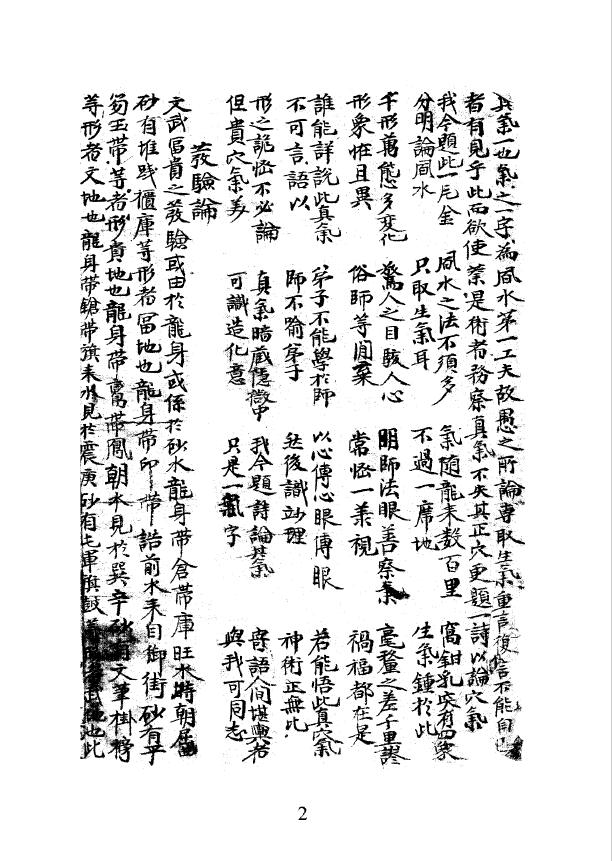 其氣一也氣之一字為風水第一工夫故愚之所論專取生氣重言復言不能自已
者有見乎此而欲使業是術者務察真氣不失其正穴更題一詩以論穴氣
我今題此一尺金 風水之法不須多 氣隨龍來数百里 窩鉗乳突有四象
分明論風水 只取生氣耳 不過一席地 生氣鍾於此
千形萬態多変化 驚人之目駭人心 明師法眼善察 毫釐之差千里謬
形象恠且異 俗師等閒棄 常恠一羕視 禍福都在是
誰能詳說此真氣 弟子不能學於師 以心傳心眼傳眼 若能悟此真穴氣
不可言語以 師不喻弟子 然後識妙理 神術正無比
形之詭恠不必論 真氣暗藏隱微中 我今題詩論其氣 寄語人间堪輿若
但貴穴氣美 可識造化意 只是一氣字 與我可同志
發驗論
文武冨貴之發驗或由於龍身或係於砂水龍身帶倉帶庫旺水特朝居
砂有堆賎櫃庫等形者冨地也龍身帶印帶誥前水来自御街砂有乎
笏玉帶等者形貴地也龍身帶鸞帶鳳朝水見於巽辛砂有文筆掛榜
等形者文地也龍身帶鎗帶旗来水見於震庚砂有屯軍旗鼓 武地也此
2